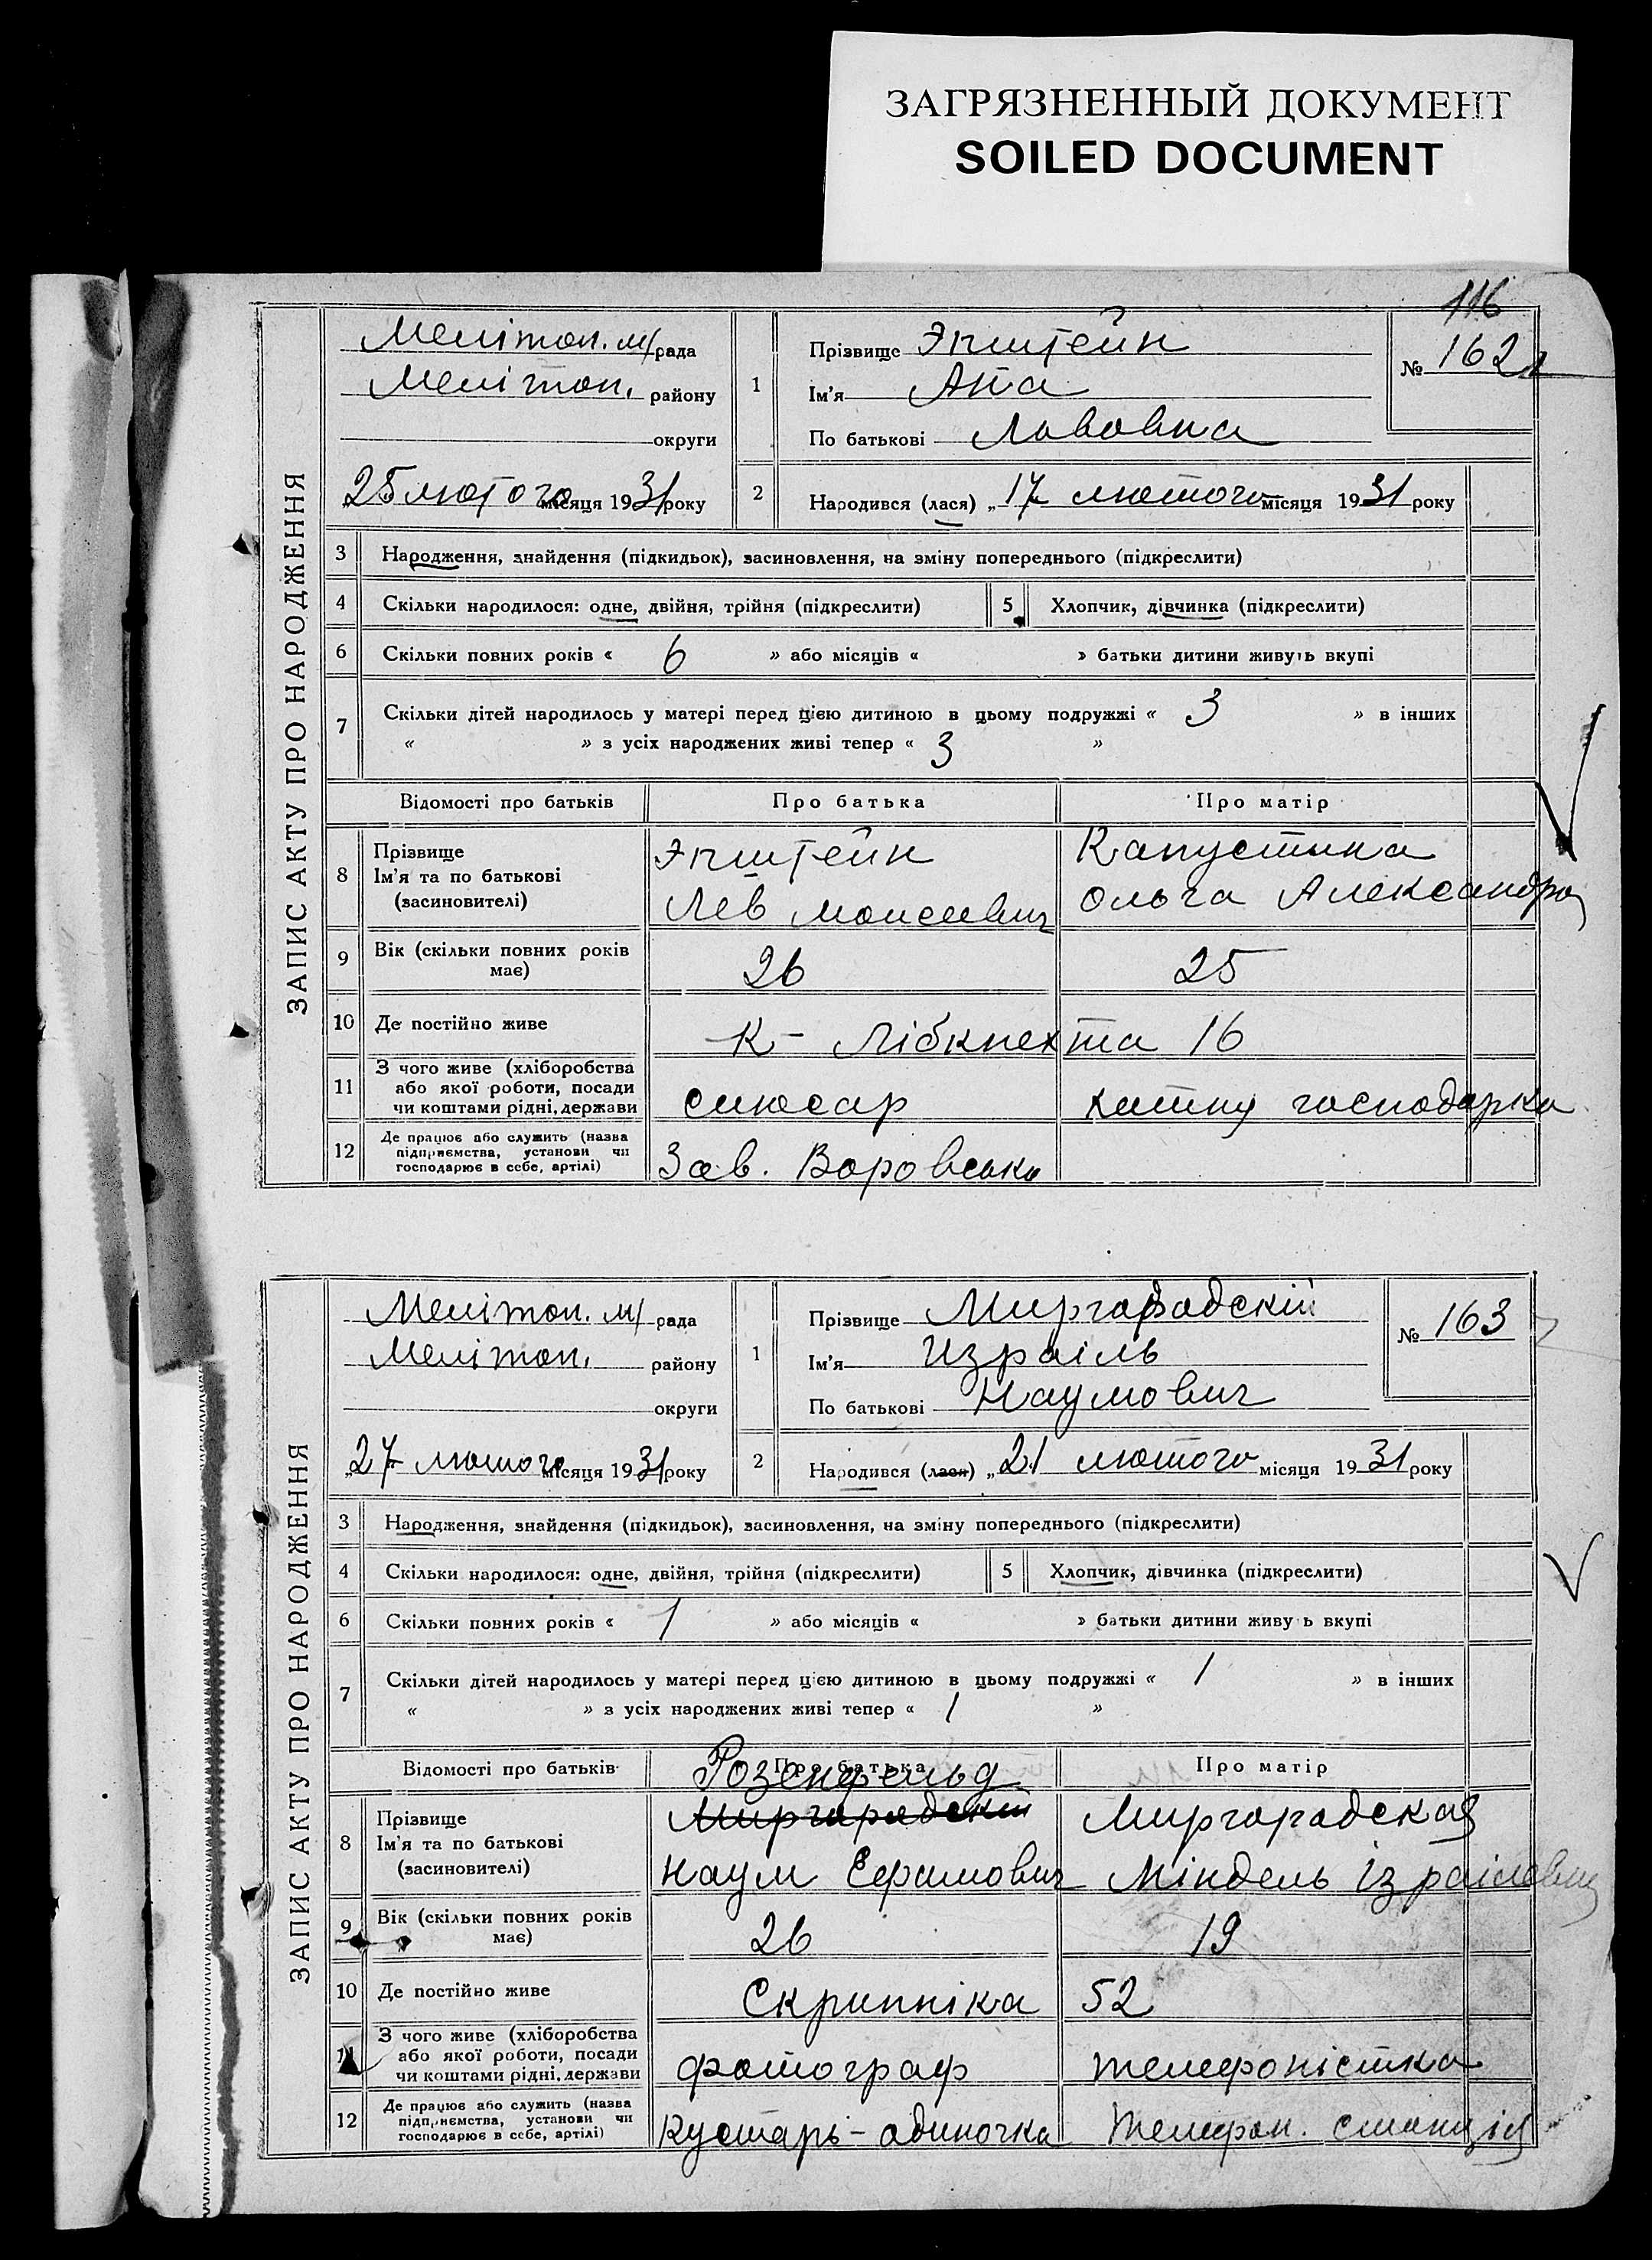 ЗАГРЯЗНЕННЫЙ ДОКУМЕНТ
SOILED DOCUMENT
116
ЗАПИС АКТУ ПРО НАРОДЖЕННЯ
Мелітоп. м/рада
Мелітоп. району
округи
25 лютого місяця 1931 року
1
Прізвище Эпштейн
Ім'я Ата
По батькові Львовна
№ 162
2
Народився (лася) „17 лютого місяця 1931 року
3 Народження, знайдення (підкидьок), засиновлення, на зміну попереднього (підкреслити)
4 Скільки народилося: одне, двійня, трійня (підкреслити) 5 Хлопчик, дівчинка (підкреслити)
6 Скільки повних років « 6 » або місяців « » батьки дитини живуть вкупі
7 Скільки дітей народилось у матері перед цією дитиною в цьому подружжі « 3 » в інших
« » з усіх народжених живі тепер « 3 »
Відомості про батьків Про батька Про матір
8 Прізвище
Ім'я та по батькові
(засиновителі)
Эпштейн
Лев Моисеевич
Капустина
Ольга Александро
9 Вік (скільки повних років має) 26 25
10 Де постійно живе К- Лібкнехта 16
11 З чого живе (хліборобства
або якої роботи, посади
чи коштами рідні, держави
слюсар
хатню господарка
12 Де працює або служить (назва
підприємства, установи чи
господарює в себе, артілі)
Зав. Воровсько
ЗАПИС АКТУ ПРО НАРОДЖЕННЯ
Мелітоп. м/ рада
Мелітоп. району
округи
„27 лютого місяця 1931 року
1
Прізвище Миргорадскій
Ім'я Израіль
По батькові Наумович
№ 163
2
Народився (лася) „21 лютого місяця 1931 року
3 Народження, знайдення (підкидьок), засиновлення, на зміну попереднього (підкреслити)
4 Скільки народилося: одне, двійня, трійня (підкреслити) 5 Хлопчик, дівчинка (підкреслити)
6 Скільки повних років « 1 » або місяців « » батьки дитини живуть вкупі
7 Скільки дітей народилось у матері перед цією дитиною в цьому подружжі « 1 » в інших
« » з усіх народжених живі тепер « 1 »
Відомості про батьків Про батька Про матір
8 Прізвище
Ім'я та по батькові
(засиновителі)
Розенфельд
Миргородскій
Наум Ефимович
Миргородская
Міндель Ізраілевн
9 Вік (скільки повних років має) 26 19
10 Де постійно живе Скрипніка 52
11 З чого живе (хліборобства
або якої роботи, посади
чи коштами рідні, держави
фотограф
телефоністка
12 Де працює або служить (назва
підприємства, установи чи
господарює в себе, артілі)
Кустарь-одиночка
Телефон. станція